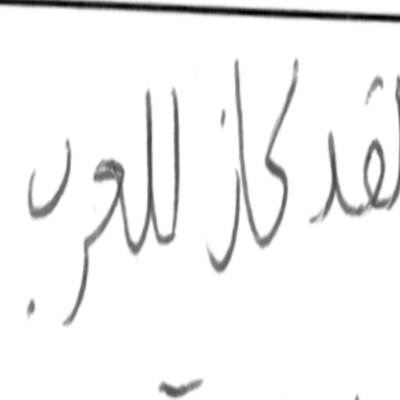 لقد كان للعرب